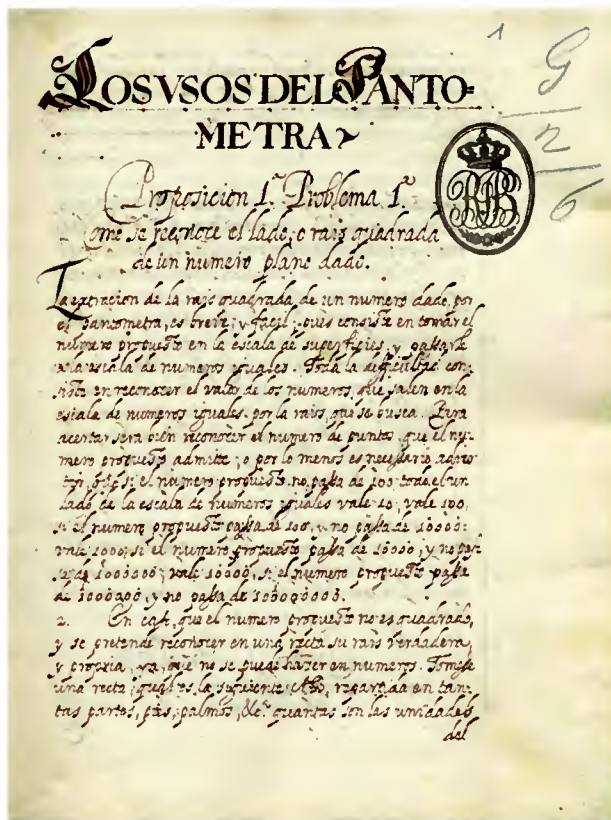 1
G
2
6
LOS VSOS DEL PANTO-
METRA
Proposicion 1ª Problema 1º
Como se reconoce el lado, o rais quadrada
de un numero plano dado.
La extracion de la rais quadrada, de un numero dado, por
el pantometra, es breve, y facil; pues consiste en tomar el
numero propuesto en la escala de superficies, y passarle
a la escala de numeros iguales. Toda la difficultad con-
siste en reconocer el valor de los numeros, que salen en la
escala de numeros iguales, por la rais, que se busca. Para
acertar sera bien reconocer el numero de puntos, que el nu-
mero propuesto admitte; o por lo menos es necessario
si el numero propuesto no passa de 100 todo el un
lado de la escala de numeros iguales vale 10; vale 100,
si el numero propuesto passa de 100, y no passa de 10000:
vale 1000, si el numero propuesto passa de 10000, y no pas-
sa de 1000000; vale 10000, si el numero propuesto passa
de 1000000, y no passa de 100000000.
2. En caso, que el numero propuesto no es quadrado,
y se pretende reconocer en una recta su rais verdadera,
y propria, ya, que no se puede hazer en numeros. Tomese
una recta, qual es la siguiente AB, repartida en tan-
tas partes, pies, palmos, &c. quantas son las unidades
del